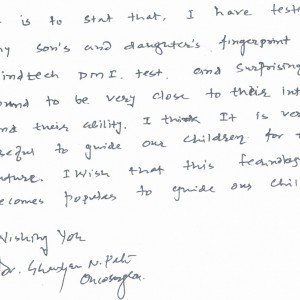 is to stat that, I have teste
son's and daughter's fingerprint
indtech DMI. test, and Surprising
ound to be very close to their int
nd their ability. I think It is ver
seful to guide our children for t
uture. I Wish that this Technolog
ecomes populer to guide our chil
Wishing You
Dr.